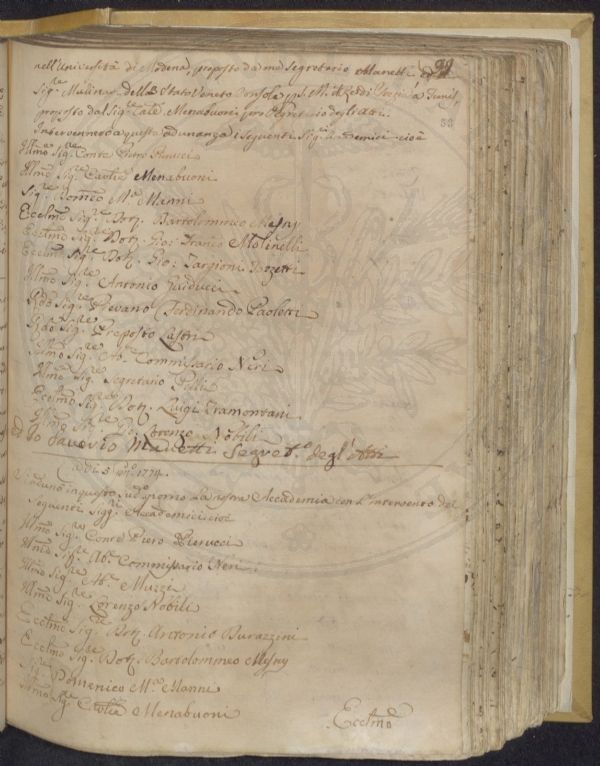 nell'Università di Modena, proposto da me Segretario Manetti, ed il
Sig.re Mulinar della Stato Veneto Console per a Tunis,
proposto dal Sig.re Cav.re Menabuoni pro Segretario degli Atti.
Intervennero a questa adunanza i seguenti Sig.ri Accademici cioè
38
Illmo Sig.re Conte Piero Pierucci
Illmo Sig.re Cav.re Menabuoni
Sig.re Domco M.a Manni
Ecclmo Sig.re Dott. Bartolommeo Mesny
Ecclmo Sig.re Dott. Gio: Franco Molinelli
Ecclmo Sig.re Dott. Gio: Targioni Tozzetti
Illmo Sig.re Antonio
Rdo Sig.re Pievano Ferdinando Paoletti
Rdo Sig.re Proposto Lastri
Illmo Sig.re Ab.e Commissario Neri
Illmo Sig.re Segretario Pelli
Ecclmo Sig.re Dott. Luigi Tramontani
Illmo Sig.re Lorenzo Nobili
ed Io Saverio Manetti Segret.o degl'Atti
Adì 5 1774.
Si adunò in questo sud.o giorno la nostra Accademia con l'intervento dei
seguenti Sigg.ri Accademici cioè
Illmo Sig.re Conte Piero Pierucci
Illmo Sig.re Ab.e Commissario Neri
Illmo Sig.re Ab.e Muzzi
Illmo Sig.re Lorenzo Nobili
Ecclmo Sig.re Dott. Antonio Durazzini
Ecclmo Sig.re Dott. Bartolommeo Mesny
Sig.re Domenico M.a Manni
Illmo Sig.re Cav.re Menabuoni
Ecclmo